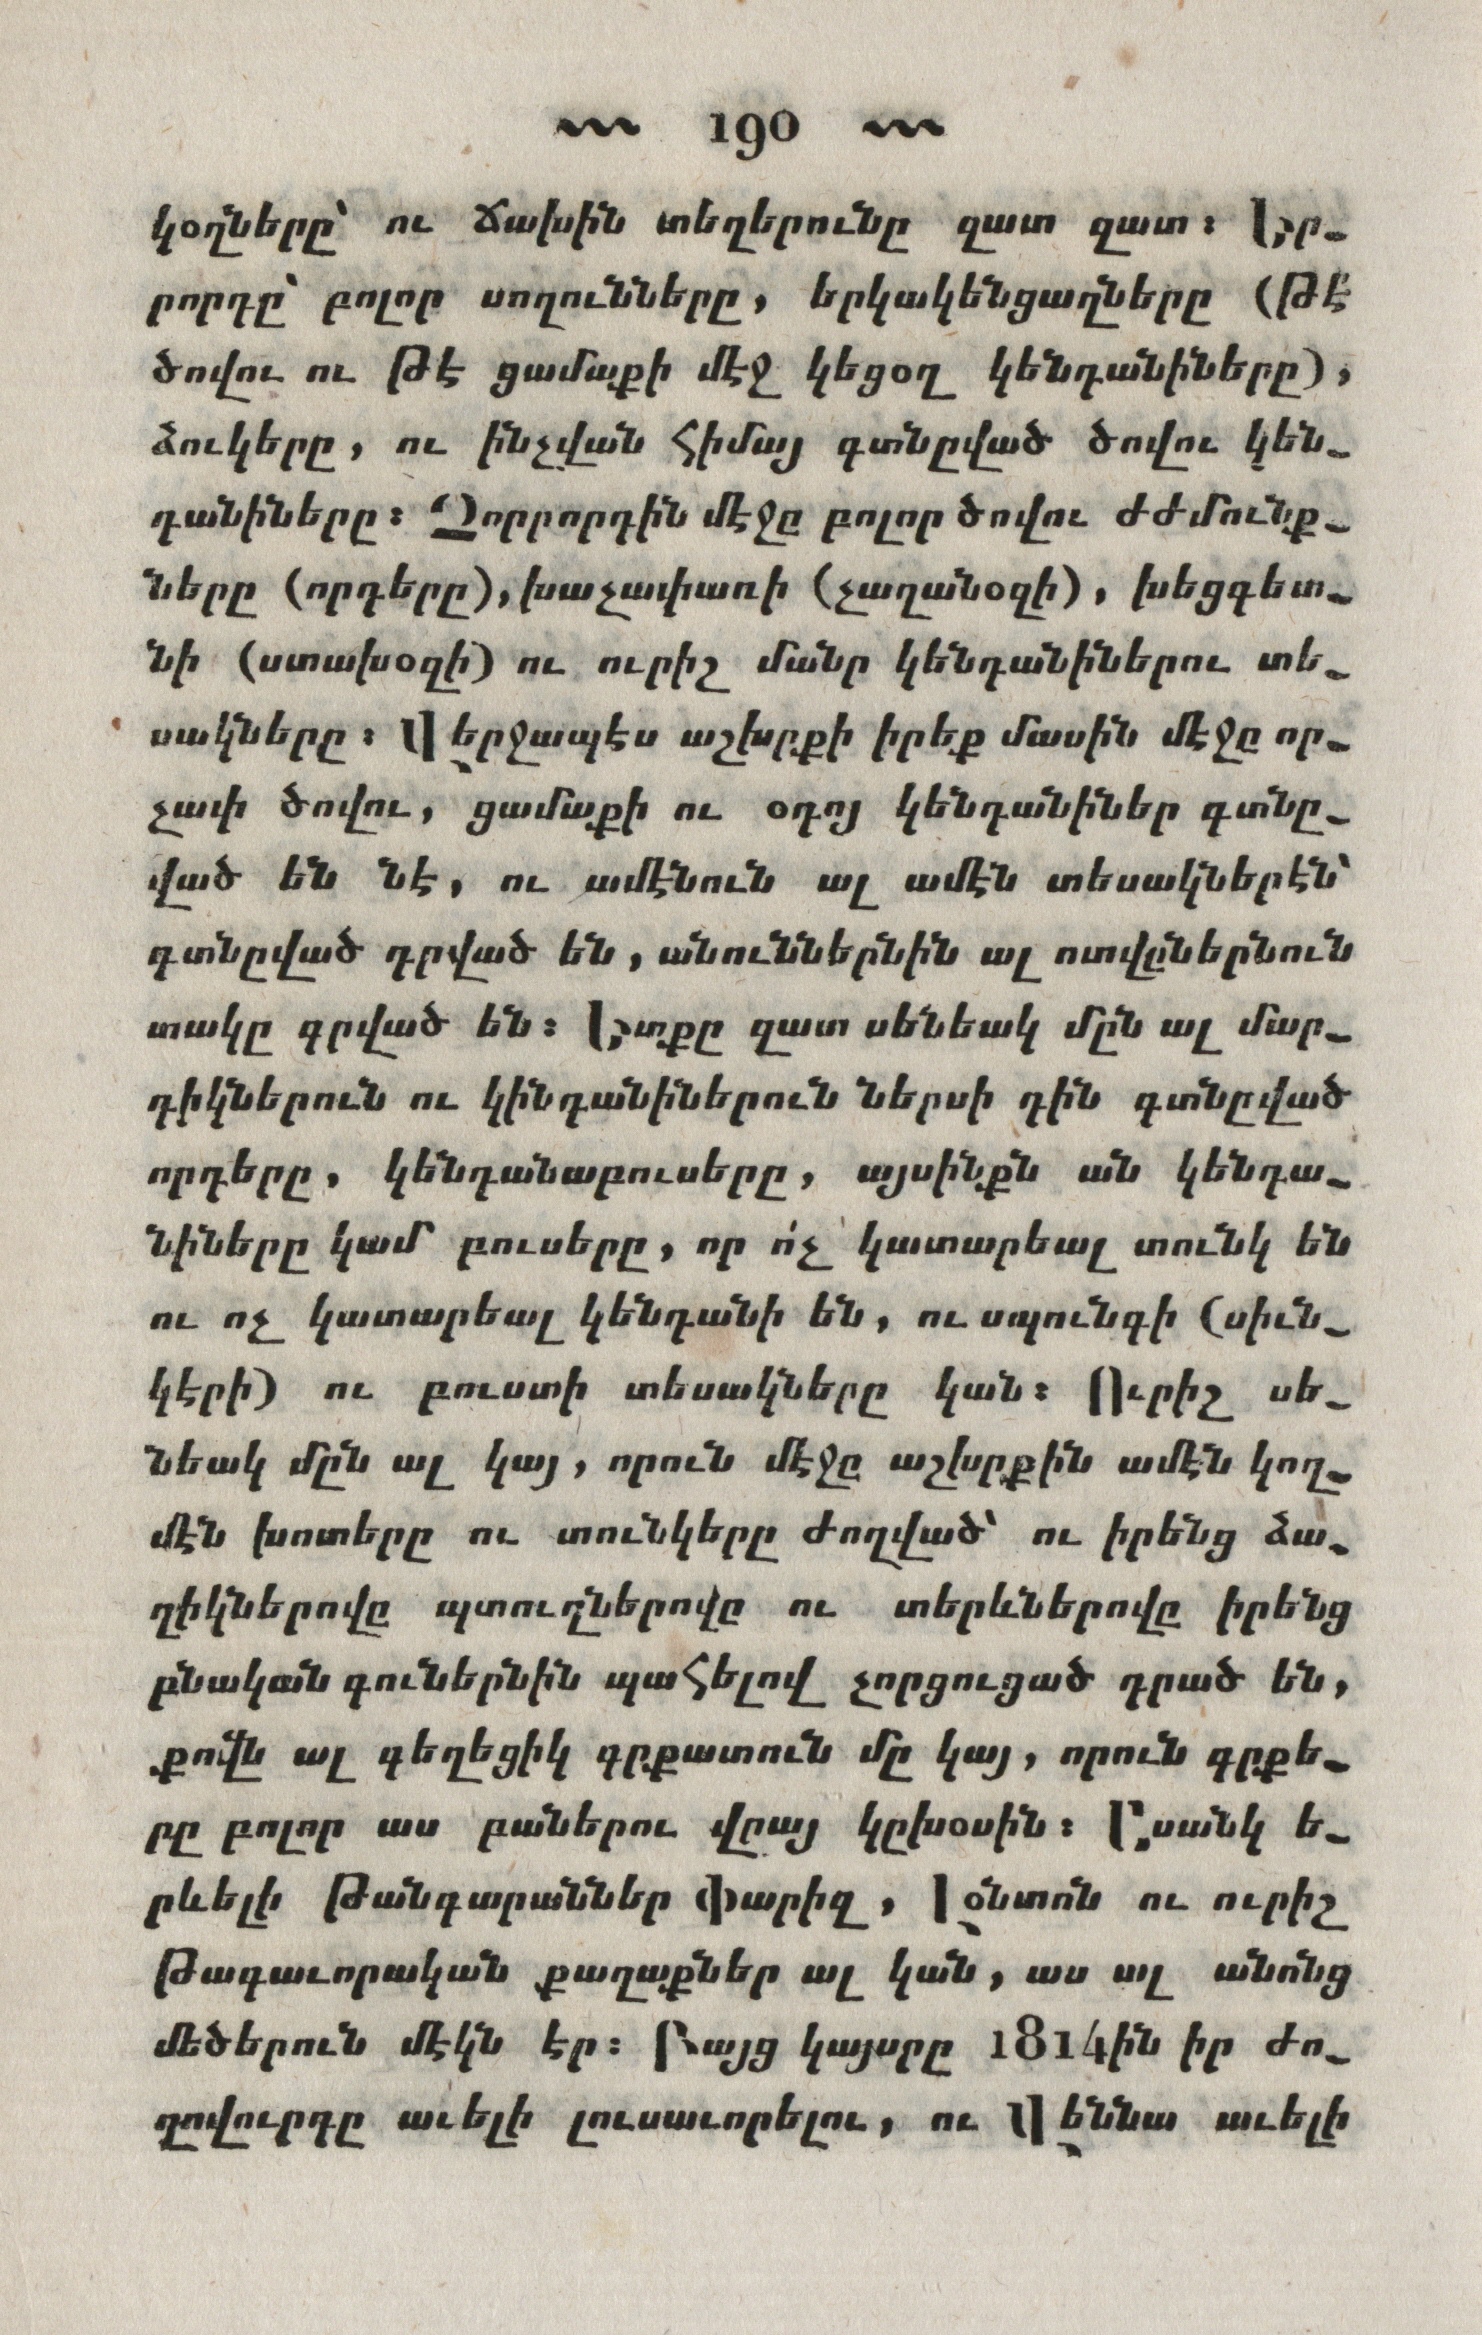 190
կօղները՝ ու ճախին տեղերունը զատ զատ։ Եր֊
րորդը՝ բոլոր սողունները, երկակենցաղները (թէ՛
ծովու ու թէ ցամաքի մէջ կեցօղ կենդանիները),
ձուկերը, ու ինչվան հիմայ գտնըված ծովու կեն֊
դանիները։ Չորրորդին մէջը բոլոր ծովու ժժմունք֊
ները (որդերը), խաչափառի (չաղանօզի), խեցգետ֊
նի (ստախօզի) ու ուրիշ մանր կենդանիներու տե֊
սակները։ Վերջապէս աշխրքի իրեք մասին մէջը որ֊
չափ ծովու, ցամաքի ու օդոյ կենդանիներ գտնը֊
ված են նէ, ու ամէնուն ալ ամէն տեսակներէն՝
գտնըված դրված են, անուններնին ալ ոտվըներնուն
տակը գրված են։ Ետքը զատ սենեակ մըն ալ մար֊
դիկներուն ու կինդանիներուն ներսի դին գտնըված
որդերը, կենդանաբուսերը, այսինքն ան կենդա֊
նիները կամ բուսերը, որ ո՛չ կատարեալ տունկ են
ու ոչ կատարեալ կենդանի են, ու սպունգի (սիւն֊
կէրի) ու բուստի տեսակները կան։ Ուրիշ սե֊
նեակ մըն ալ կայ, որուն մէջը աշխրքին ամէն կող֊
մէն խոտերը ու տունկերը ժողված՝ ու իրենց ձա֊
ղիկներովը պտուղներովը ու տերևներովը իրենց
բնական գուներնին պահելով չորցուցած դրած են,
քովն ալ գեղեցիկ գրքատուն մը կայ, որուն գրքե֊
րը բոլոր աս բաներու վրայ կըխօսին։ Ըսանկ ե֊
րևելի թանգարաններ Փարիզ, Լօնտոն ու ուրիշ
թագաւորական քաղաքներ ալ կան, աս ալ անոնց
մեծերուն մէկն էր։ Բայց կայսրը 1814ին իր ժո֊
ղովուրդը աւելի լուսաւորելու, ու Վեննա աւելի